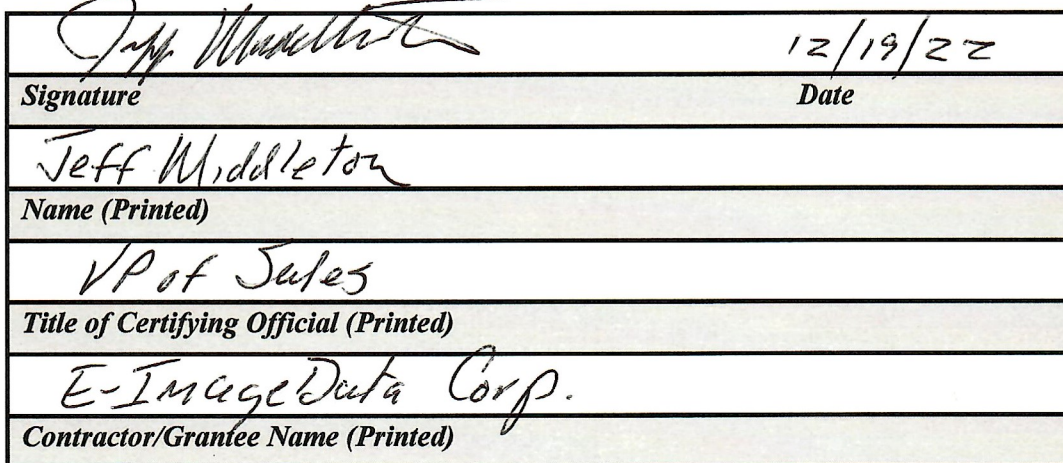 Jeff Middleton 12/19/22
Signature Date
Jeff Middleton
Name (Printed)
VP of Sales
Title of Certifying Official (Printed)
E-ImageData Corp.
Contractor/Grantee Name (Printed)